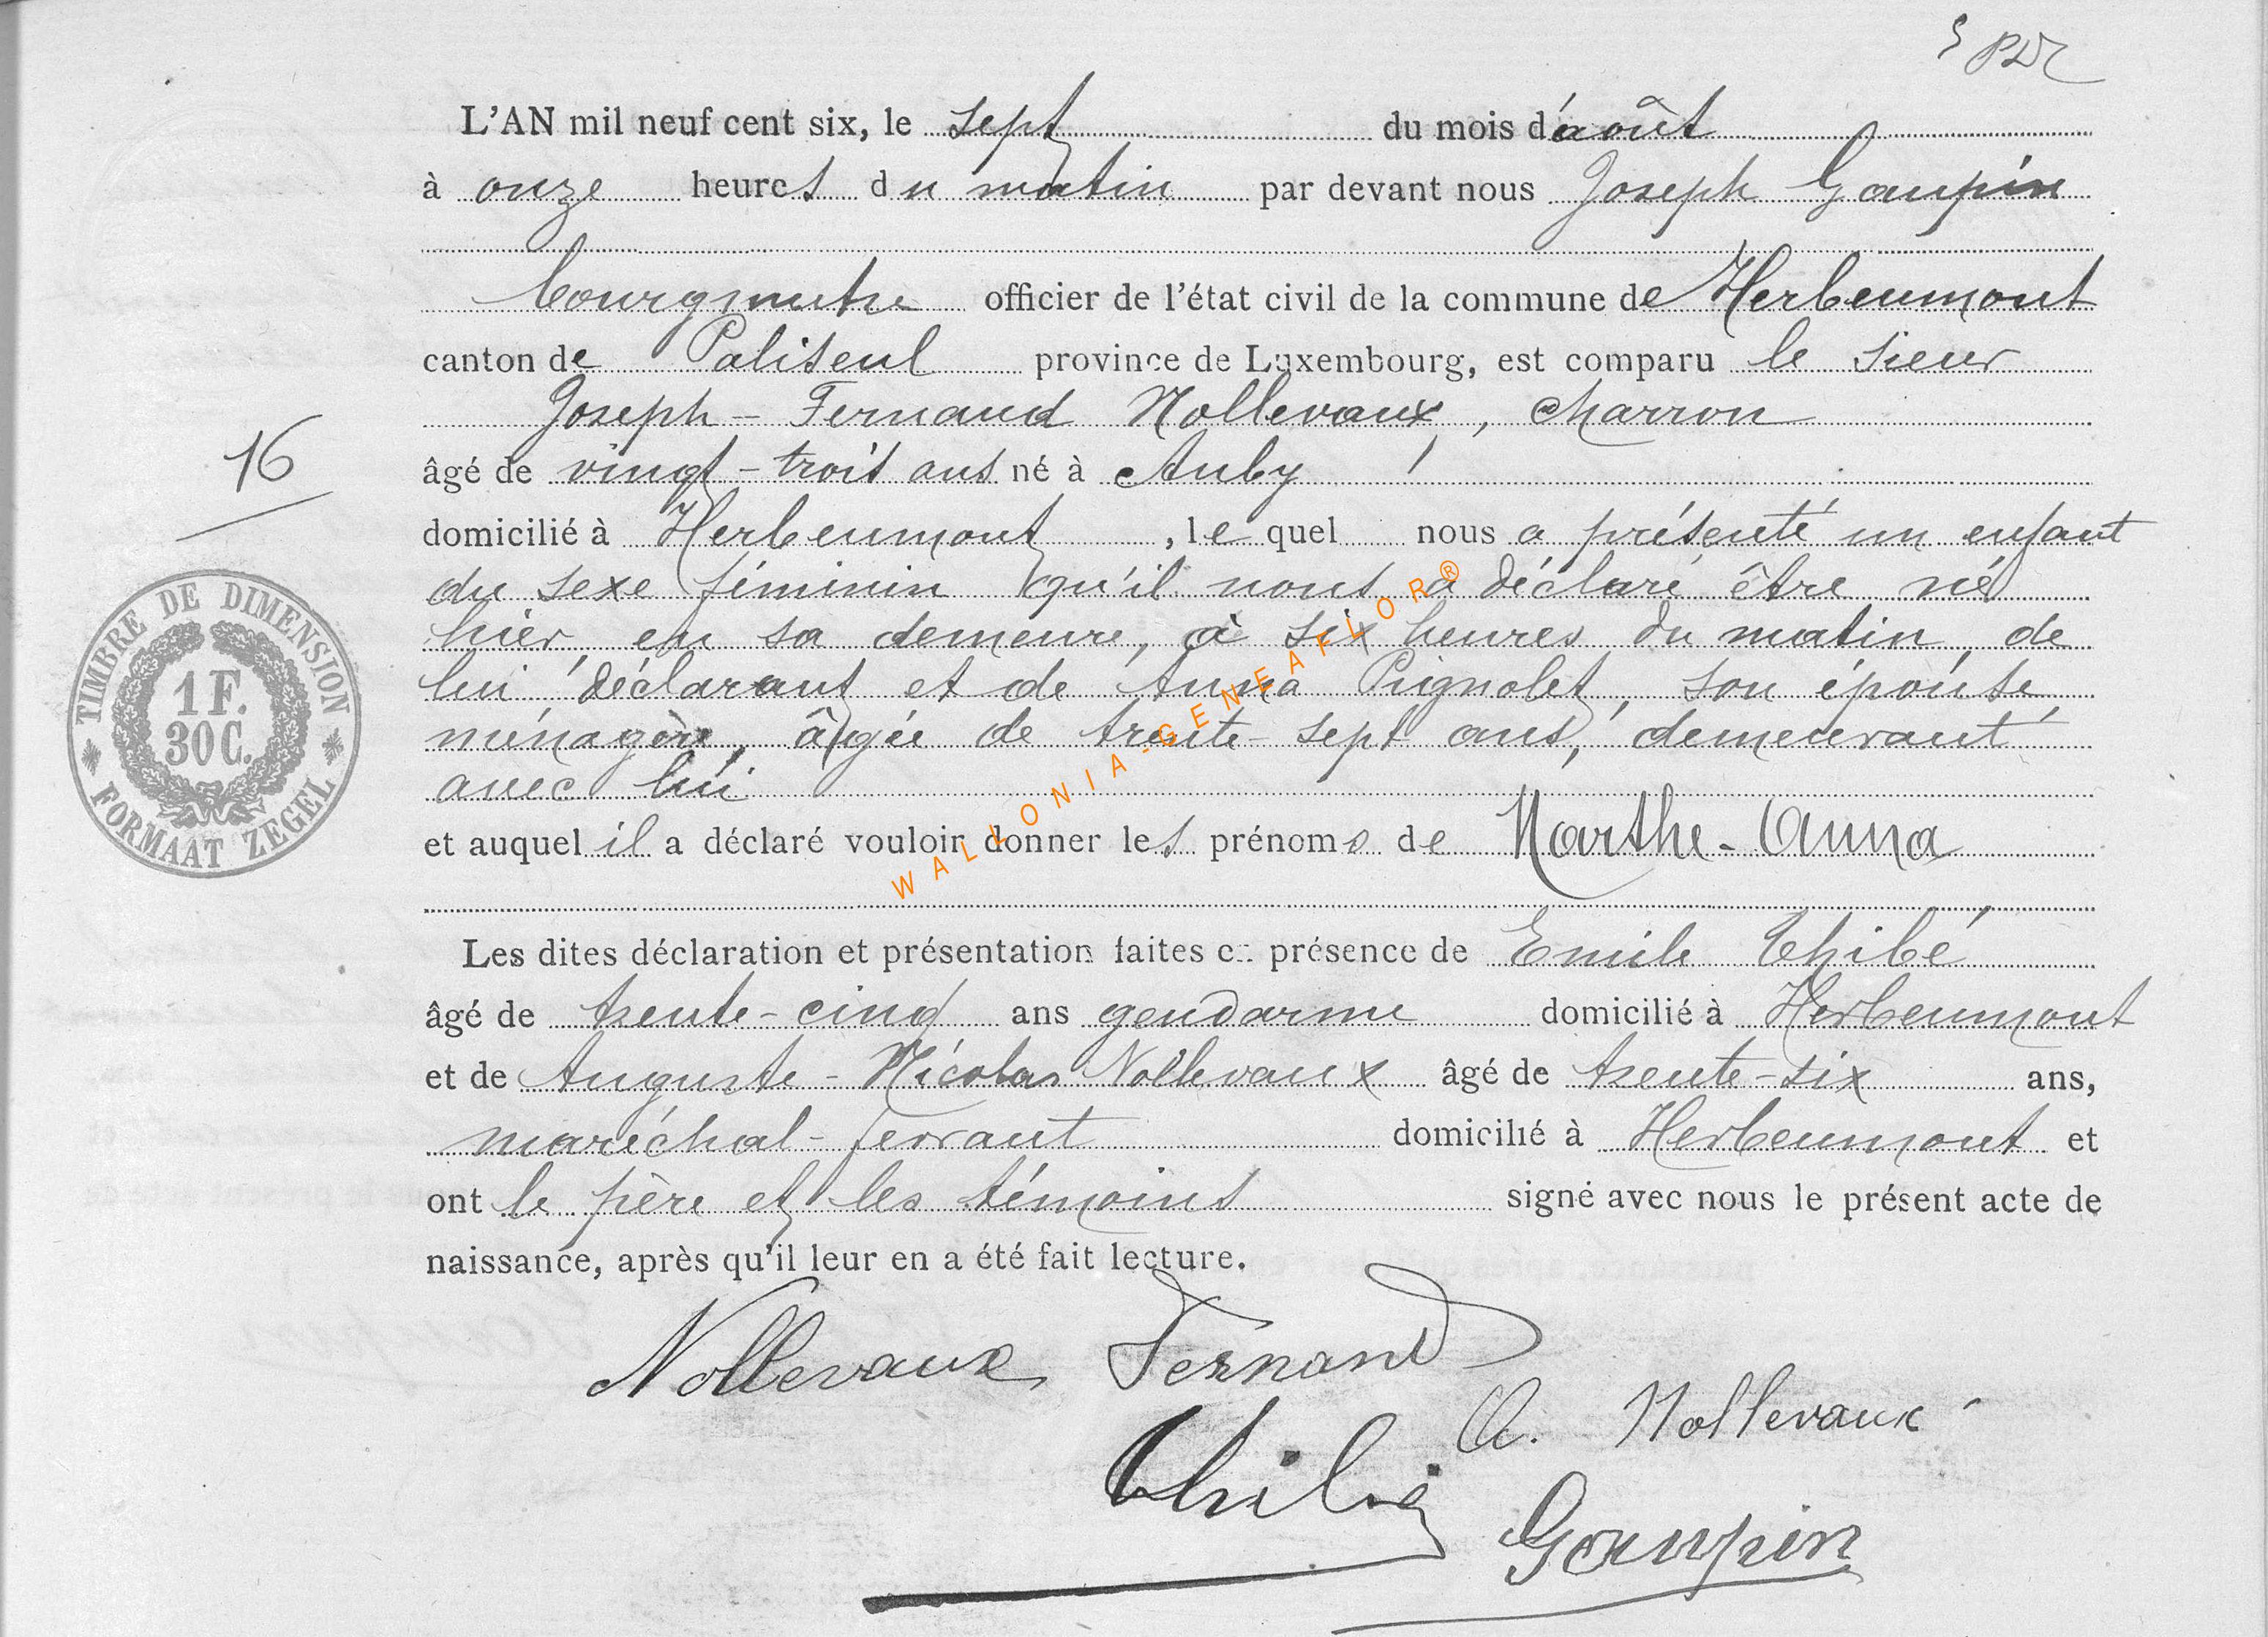 L'AN mil neuf cent six, le sept du mois d'août
à onze heures du matin par devant nous Joseph Gaupin
bourgmestre officier de l'état civil de la commune de Herbeumont
canton de Paliseul province de Luxembourg, est comparu le sieur
Joseph-Fernand Nollevaux, charron
âgé de vingt-trois ans né à Auby
16
domicilié à Herbeumont, lequel nous a présenté un enfant
du sexe féminin qu'il nous a déclaré être né
hier, en sa demeure, à six heures du matin, de
lui déclarant et de Anna Pignolet, son épouse,
ménagère, âgée de trente-sept ans, demeurant
avec lui
et auquel il a déclaré vouloir donner les prénoms de Marthe-Anna
TIMBRE DE DIMENSION
1 F.
30 C.
FORMAAT ZEGEL
WALLONIA-GENEAFLOR®
Les dites déclaration et présentation faites en présence de Emile Thibé
âgé de trente-cinq ans gendarme domicilié à Herbeumont
et de Auguste-Nicolas Nollevaux âgé de trente-six ans,
maréchal-ferrant domicilié à Herbeumont et
ont le père et les témoins signé avec nous le présent acte de
naissance, après qu'il leur en a été fait lecture.
Nollevaux Fernand
A. Nollevaux
Thibé
Gaupin